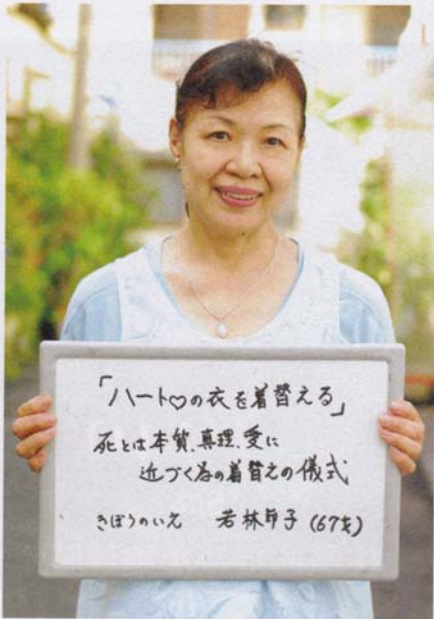 「ハート♡の衣を着替える」
死とは本質、真理、愛に
近づく為の着替えの儀式
きぼうのいえ 若林節子(67才)